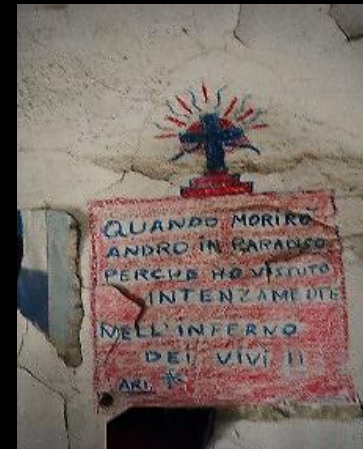 QUANDO MORIRO
ANDRO IN PARADISO
PERCHE HO VISSUTO
INTENZAMENTE
NELL'INFERNO
DEI VIVI !!
ARI. *